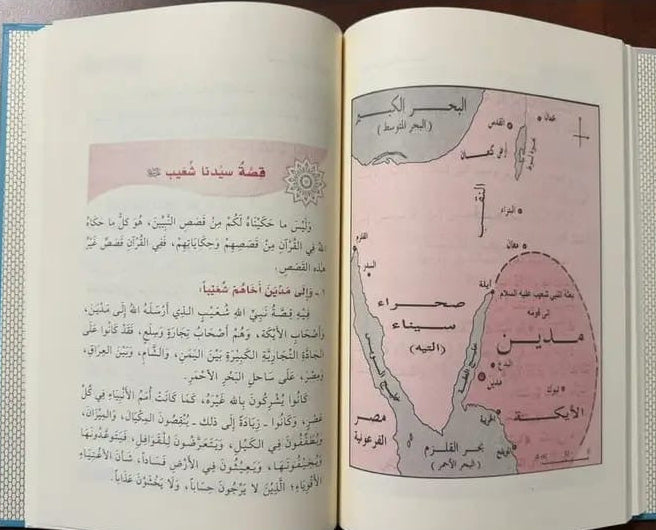 قِصَّةُ سَيِّدنا شُعَيب
وَلَيْسَ ما حَكَيْنَاهُ لَكُمْ مِنْ قَصَصِ النَّبِيِّينَ، هُوَ كلُّ ما حَكاهُ
اللهُ في القُرْآنِ مِنْ قَصَصِهِمْ وَحِكايَاتِهِمْ، فَفِي القُرْآنِ قَصَصٌ غَيْرُ
هٰذِهِ القَصَصِ:
١ - وَإِلى مَدْيَنَ أخاهُمْ شُعَيْباً:
فِيهِ قِصَّةُ نَبِيِّ اللهِ شُعَيْبٍ الَّذي أَرْسَلَهُ اللهُ إِلَى مَدْيَنَ،
وَأَصْحَابِ الأَيْكَةِ، وَهُمْ أَصْحَابُ تِجَارَةٍ وَسِلَعٍ، فَقَدْ كَانُوا عَلَى
الجَادَّةِ التِّجَارِيَّةِ الكَبِيْرَةِ بَيْنَ اليَمَنِ، وَالشَّامِ، وَبَيْنَ العِرَاقِ،
وَمِصْرَ، عَلَى سَاحِلِ البَحْرِ الأَحْمَرِ.
كَانُوا يُشْرِكُونَ بِاللهِ غَيْرَهُ، كَمَا كَانَتْ أُمَمُ الأَنْبِيَاءِ فِي كُلِّ
عَصْرٍ، وَكَانُوا - زِيَادَةً إِلى ذلِكَ - يُنْقِصُونَ المِكْيَالَ، وَالمِيْزَانَ،
وَيُطَفِّفُونَ فِي الكَيْلِ، وَيَتَعَرَّضُونَ لِلْقَوَافِلِ، فَيَتَوَعَّدُونَهَا
وَيُخِيْفُونَهَا، وَيَعِيْثُونَ فِي الأَرْضِ فَسَاداً، شَأْنَ الأَغْنِيَاءِ
الأَقْوِيَاءِ؛ الَّذِيْنَ لَا يَرْجُونَ حِسَاباً، وَلَا يَخْشَوْنَ عَذَاباً.
البحر الكبير
(البحر المتوسط)
القدس
عمان
النقب
البتراء
معان
القلزم
السدر
أيلة
بعثة النبي شعيب عليه السلام
إلى قومه
مدين
صحراء
سيناء
(التيه)
خليج السويس
خليج العقبة
البدع
مدين
تبوك
الأيكة
مصر
الفرعونية
بحر القلزم
(البحر الأحمر)